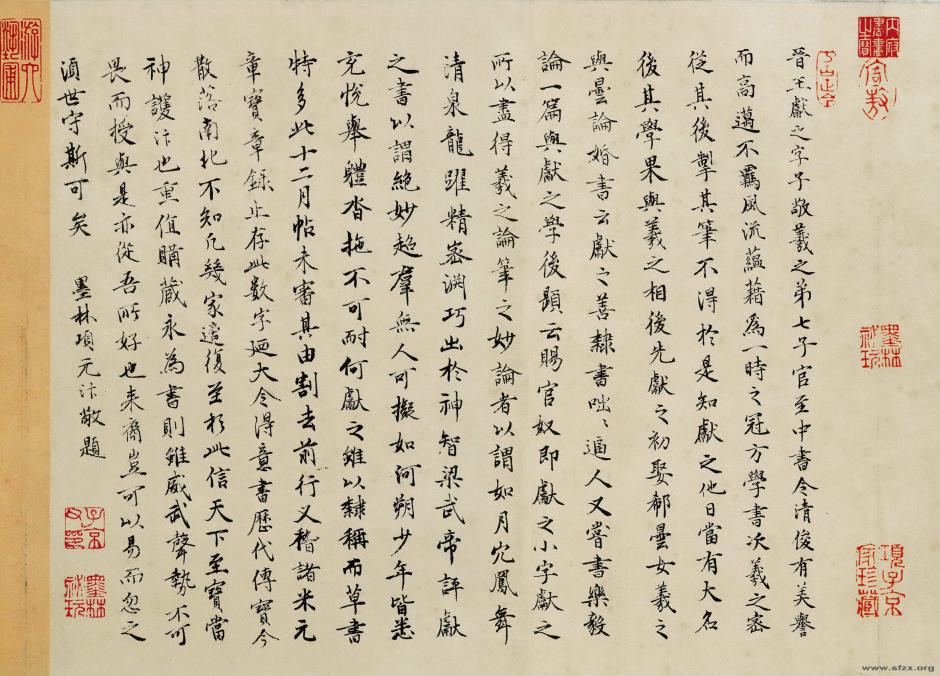 晉王獻之字子敬羲之弟七子官至中書令清俊有美譽
而高邁不羈風流蘊藉為一時之冠方學書次羲之密
從其後掣其筆不得於是知獻之他日當有大名
後其學果與羲之相後先獻之初娶郗曇女羲之
與曇論婚書云獻之善隸書咄咄逼人又嘗書樂毅
論一篇與獻之學後題云賜官奴即獻之小字獻之
所以盡得羲之論筆之妙論者以謂如丹穴鳳舞
清泉龍躍精密淵巧出於神智梁武帝評獻
之書以謂絕妙超羣無人可擬如河朔少年皆悉
充悅舉體沓拖不可耐何獻之雖以隸稱而草書
特多此十二月帖未審其由割去前行又稽諸米元
章寶章錄止存此數字廼大令得意書歷代傳寶今
散落南北不知凡幾家邅復至於此信天下至寶當
神護汴也重值購藏永為書則雖威武聲勢不可
畏而授與是亦從吾所好也來裔豈可以易而忽之
須世守斯可矣 墨林項元汴敬題
墨林祕玩
項子京家珍藏
子京父印
墨林祕玩
www.sfzx.org